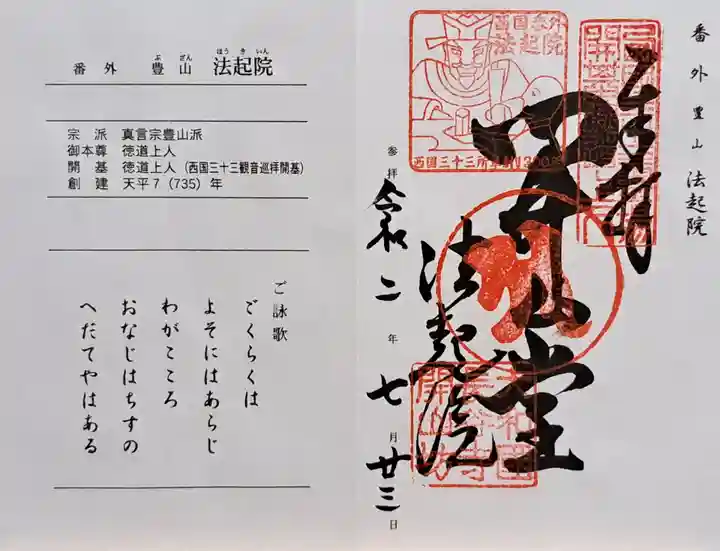 番外 豊山 法起院
ぶざん ほうきいん
宗派 真言宗豊山派
御本尊 徳道上人
開基 徳道上人（西国三十三観音巡拝開基）
創建 天平7（735）年
ご詠歌
ごくらくは
よそにはあらじ
わがこころ
おなじはちすの
へだてやはある
番外豊山 法起院
奉拝
開山堂
法起院
西国番外
法起院
参拝 令和二年七月廿三日